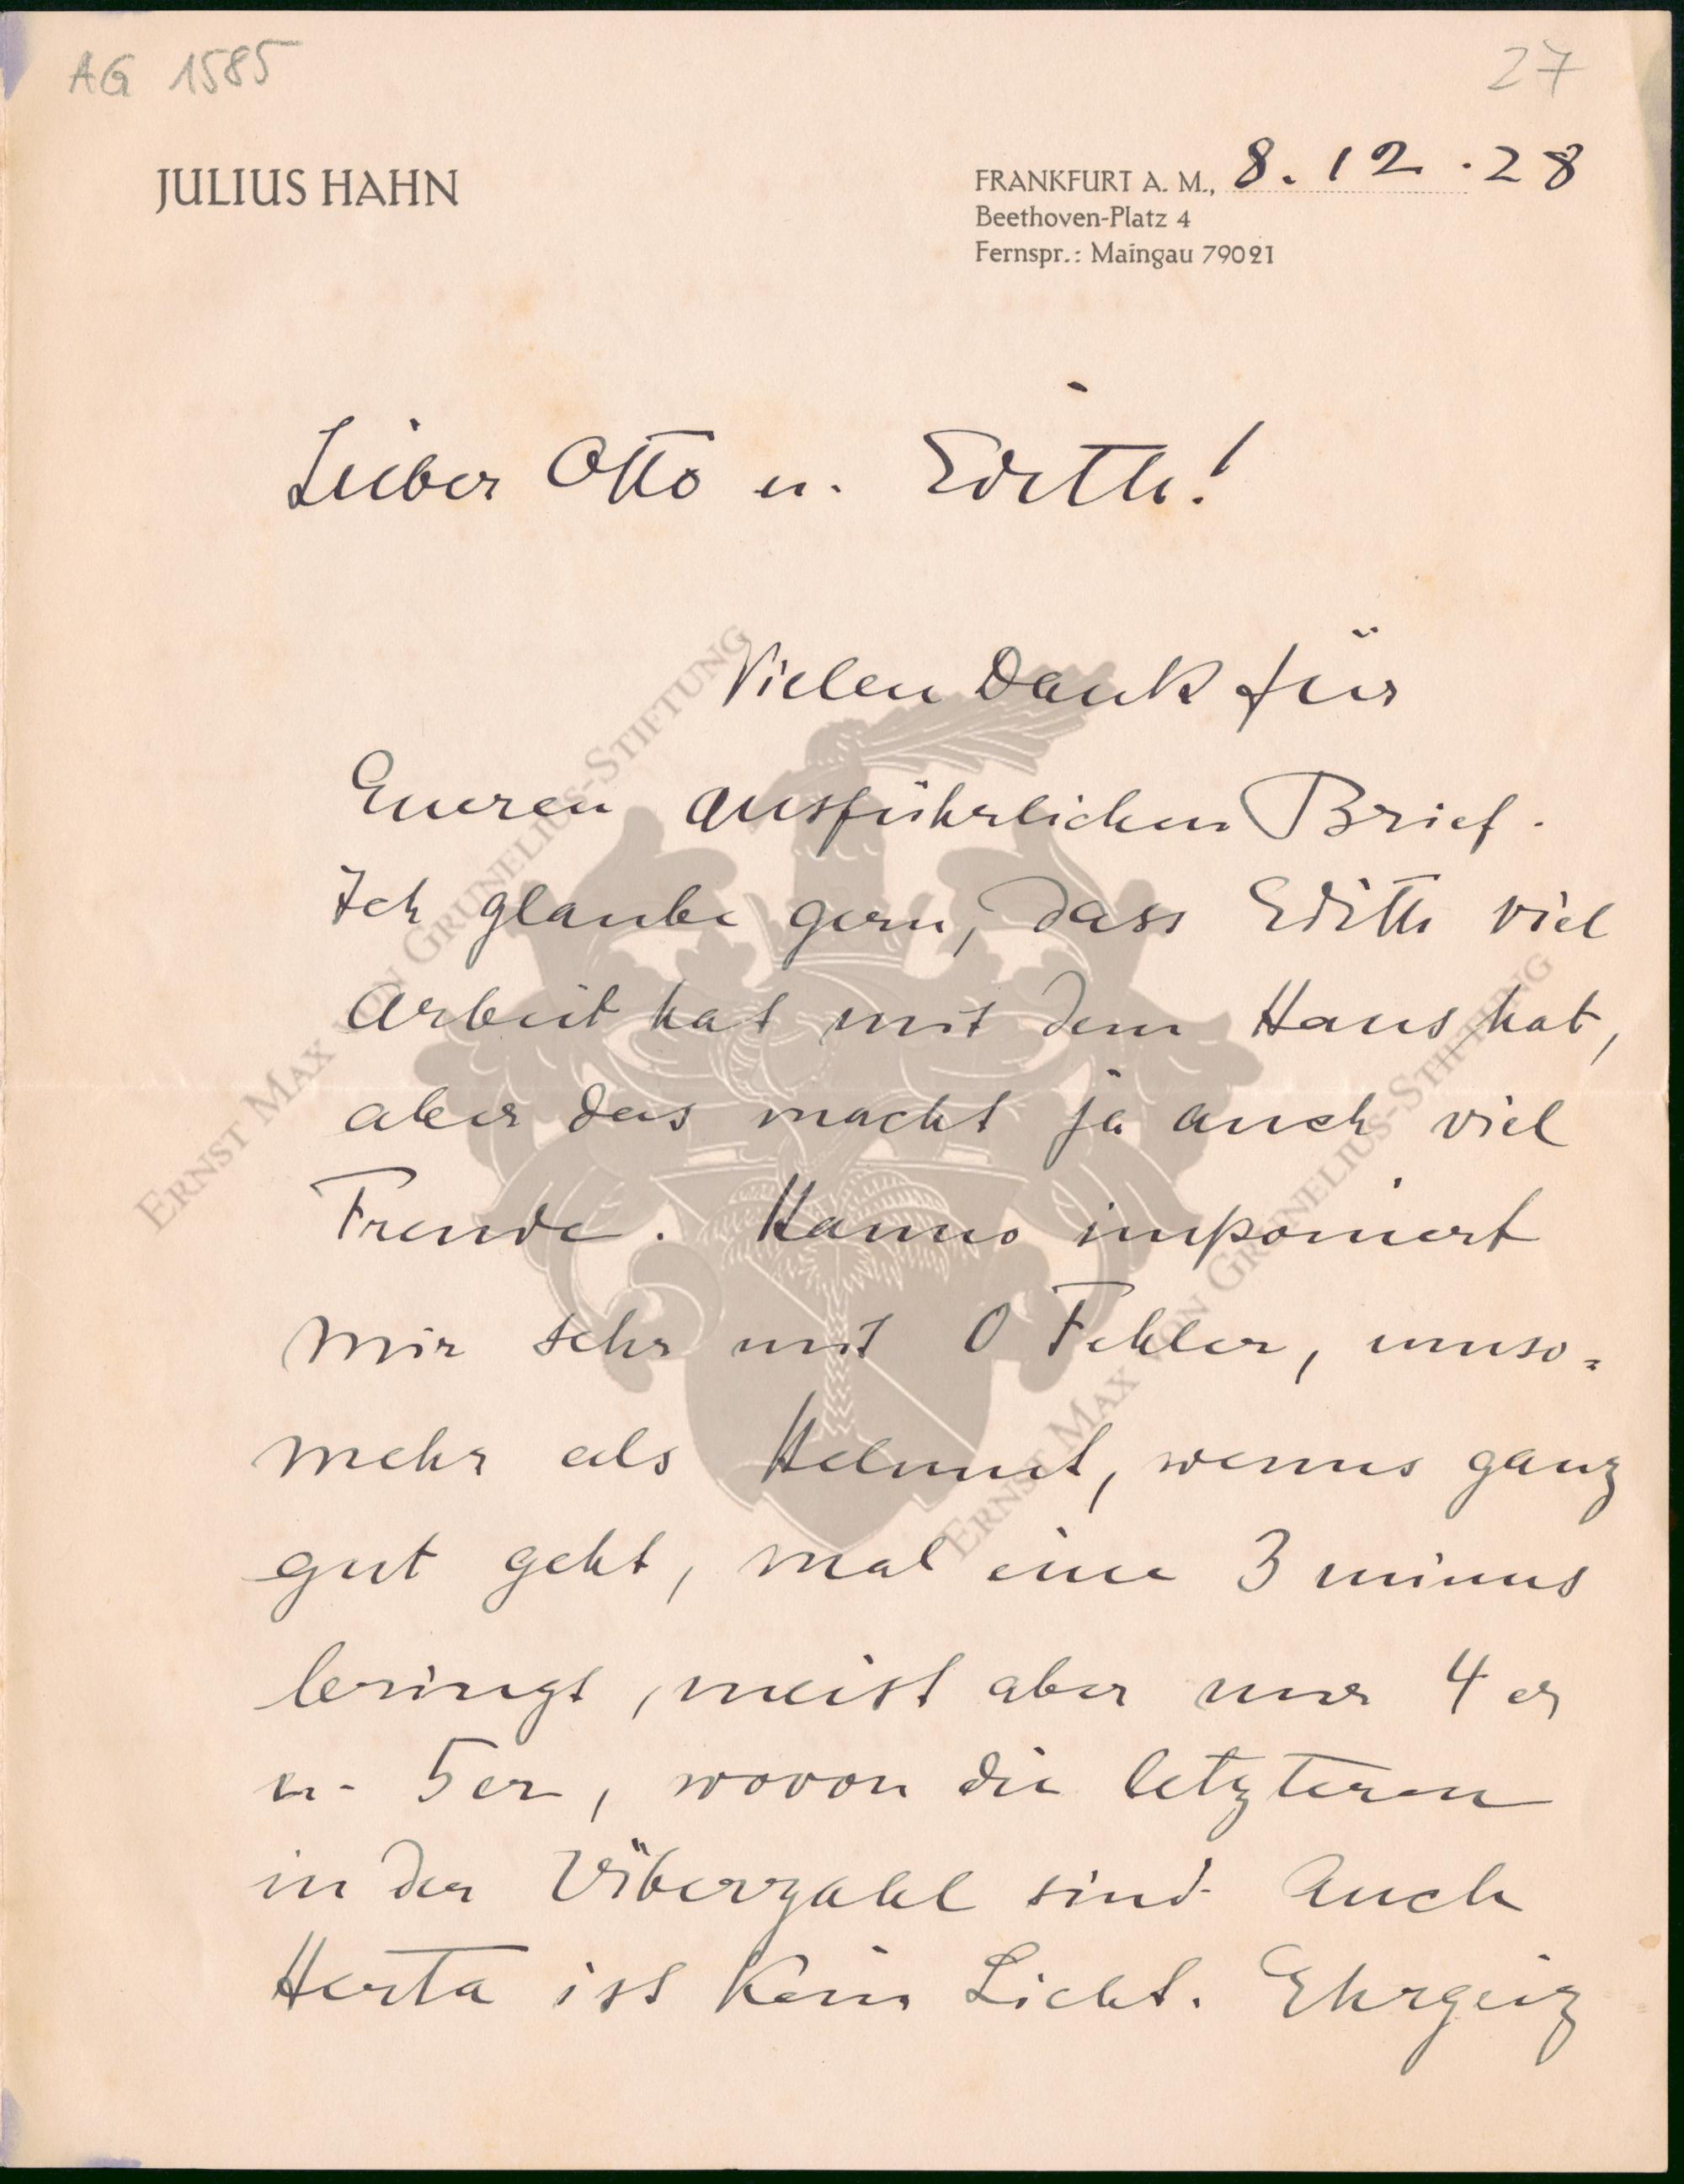 AG 1585
27
JULIUS HAHN
FRANKFURT A. M., 8.12.28
Beethoven-Platz 4
Fernspr.: Maingau 79021
Lieber Otto u. Edith!
Vielen Dank für
Eueren ausführlichen Brief.
Ich glaube gern, dass Edith viel
Arbeit hat mit dem Haus hat,
aber das macht ja auch viel
Freude. Hanno imponiert
mir sehr mit 0 Fehler, umso=
mehr als Helmut, wenns ganz
gut geht, mal eine 3 minus
bringt, meist aber nur 4 er
u. 5er, wovon die letzteren
in der Überzahl sind. Auch
Herta ist kein Licht. Ehrgeiz
ERNST MAX VON GRUNELIUS-STIFTUNG
ERNST MAX VON GRUNELIUS-STIFTUNG